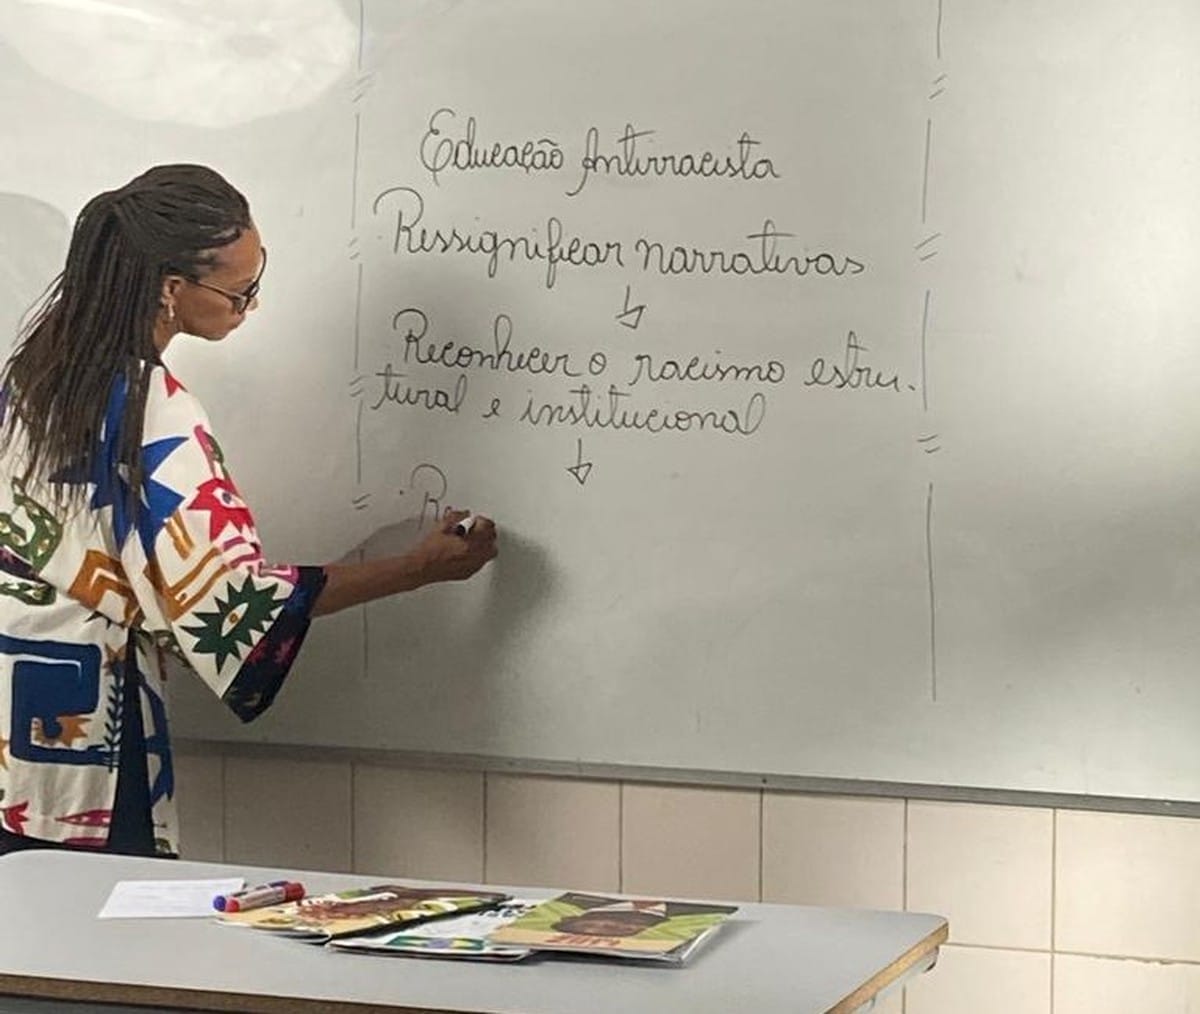 Educação Antirracista
Ressignificar narrativas
Reconhecer o racismo estru-
tural e institucional